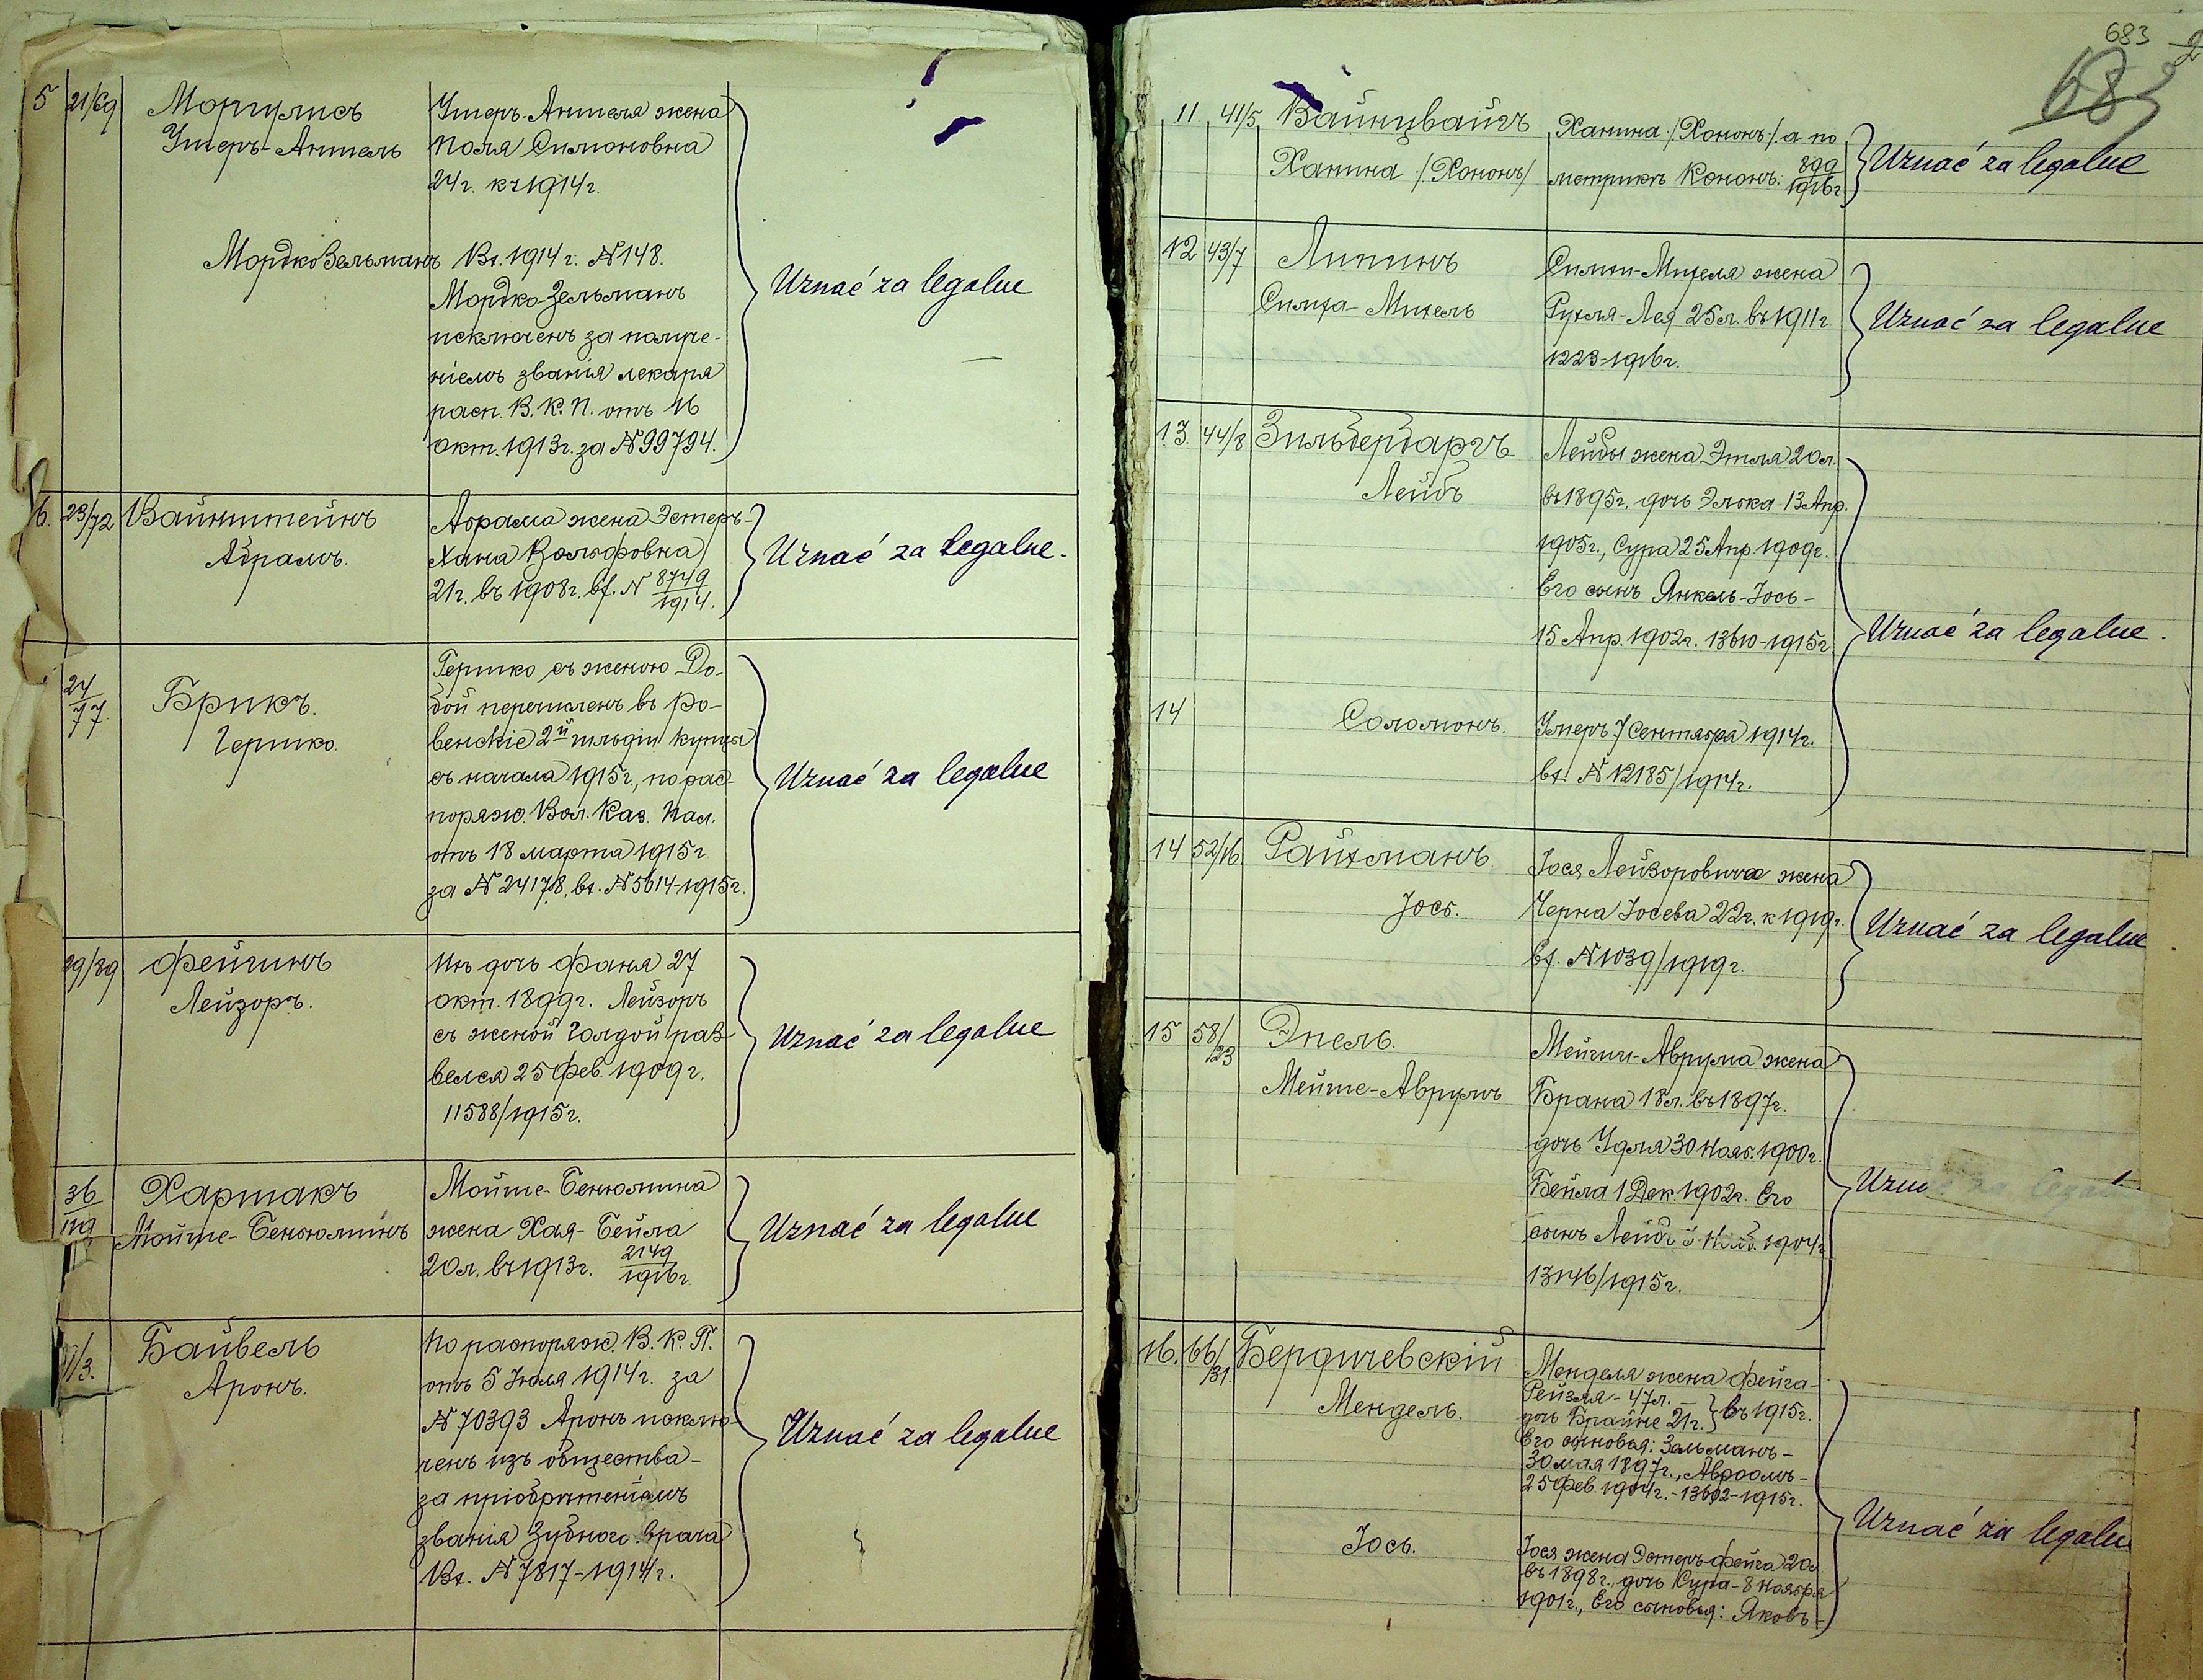 5 21/69 Моргулисъ
Умеръ-Аншель
Умеръ-Аншеля жена
Поля Симоновна
24 г. къ 1914 г.
Мордко Зельманъ
Вх. 1914 г. N 148.
Мордко-Зельманъ
исключенъ за получе-
ніемъ званія лекаря
расп. В. К. П. отъ 16
окт. 1913 г. за N 99794.
Uznać za legalne
6. 23/72 Вайнштейнъ
Абрамъ.
Абрама жена Эстеръ-
Хана Вольфовна
21 г. въ 1908 г. вх. N 8749/1914.
Uznać za legalne.
24/77. Брикъ.
Гершко.
Гершко съ женою До-
бой перечисленъ въ Ро-
венскіе 2й гильдіи купцы
съ начала 1915 г., по рас-
поряж. Вол. Каз. Пал.
отъ 18 марта 1915 г.
за N 24178, вх. N 5614-1915 г.
Uznać za legalne
29/89 Фейгинъ
Лейзоръ.
Ихъ дочь Фаня 27
окт. 1899 г. Лейзоръ
съ женой Голдой раз-
велся 25 Фев. 1909 г.
11588/1915 г.
Uznać za legalne
36/119 Хартакъ
Мойше-Беньюминъ
Мойше-Бенюмина
жена Хая-Бейла
20 л. въ 1913 г. 2149/1916 г.
Uznać za legalne
/3. Байвель
Аронъ.
По распоряж. В. К. П.
отъ 5 Іюля 1914 г. за
N 70393 Аронъ исклю-
ченъ изъ общества-
за пріобрѣтеніемъ
званія Зубного врача
Вх. N 7817-1914 г.
Uznać za legalne
683
683
11 41/5 Вайнцвайгъ
Ханина /Хононъ/
Ханина /Хононъ/. а по
метрикѣ Кононъ. 899/1916 г.
Uznać za legalne
12 43/7 Липинъ
Симха-Михель
Симхи-Михеля жена
Рухля-Лея 25 л. въ 1911 г.
1223-1916 г.
Uznać za legalne
13. 44/8 Зильбербаргъ
Лейбъ
Лейбы жена Этля 20 л.
въ 1895 г. дочь Элька-13 Апр.
1905 г., Сура 25 Апр. 1909 г.
Его сынъ Янкель-Іось-
15 Апр. 1902 г. 13610-1915 г.
Uznać za legalne.
14 Соломонъ.
Умеръ 7 Сентября 1914 г.
вх. N 12185/1914 г.
14 52/16 Райхманъ
Іось.
Іося Лейзоровича жена
Черна Іосева 22 г. к 1919 г.
Вх. N 1039/1919 г.
Uznać za legalne
15 58/23 Эпель.
Мейше-Аврумъ
Мейши-Аврума жена
Брана 18 л. въ 1897 г.
дочь Удля 30 Нояб. 1900 г.
Бейла 1 Дек. 1902 г. Его
сынъ Лейбъ 1904 г.
13146/1915 г.
Uznać za legal
16. 66/31. Бердичевскій
Мендель.
Менделя жена Фейга-
Рейзля-47 л.
дочь Брайне 21 г. } въ 1915 г.
Его сыновья: Зельманъ-
30 мая 1897 г., Авраамъ-
25 Фев. 1904 г.-13692-1915 г.
Іось.
Іося жена Эстеръ-Фейга 20 л.
въ 1898 г., дочь Сура-8 Ноября
1901 г., Его сыновья: Яковъ-
Uznać za legalne